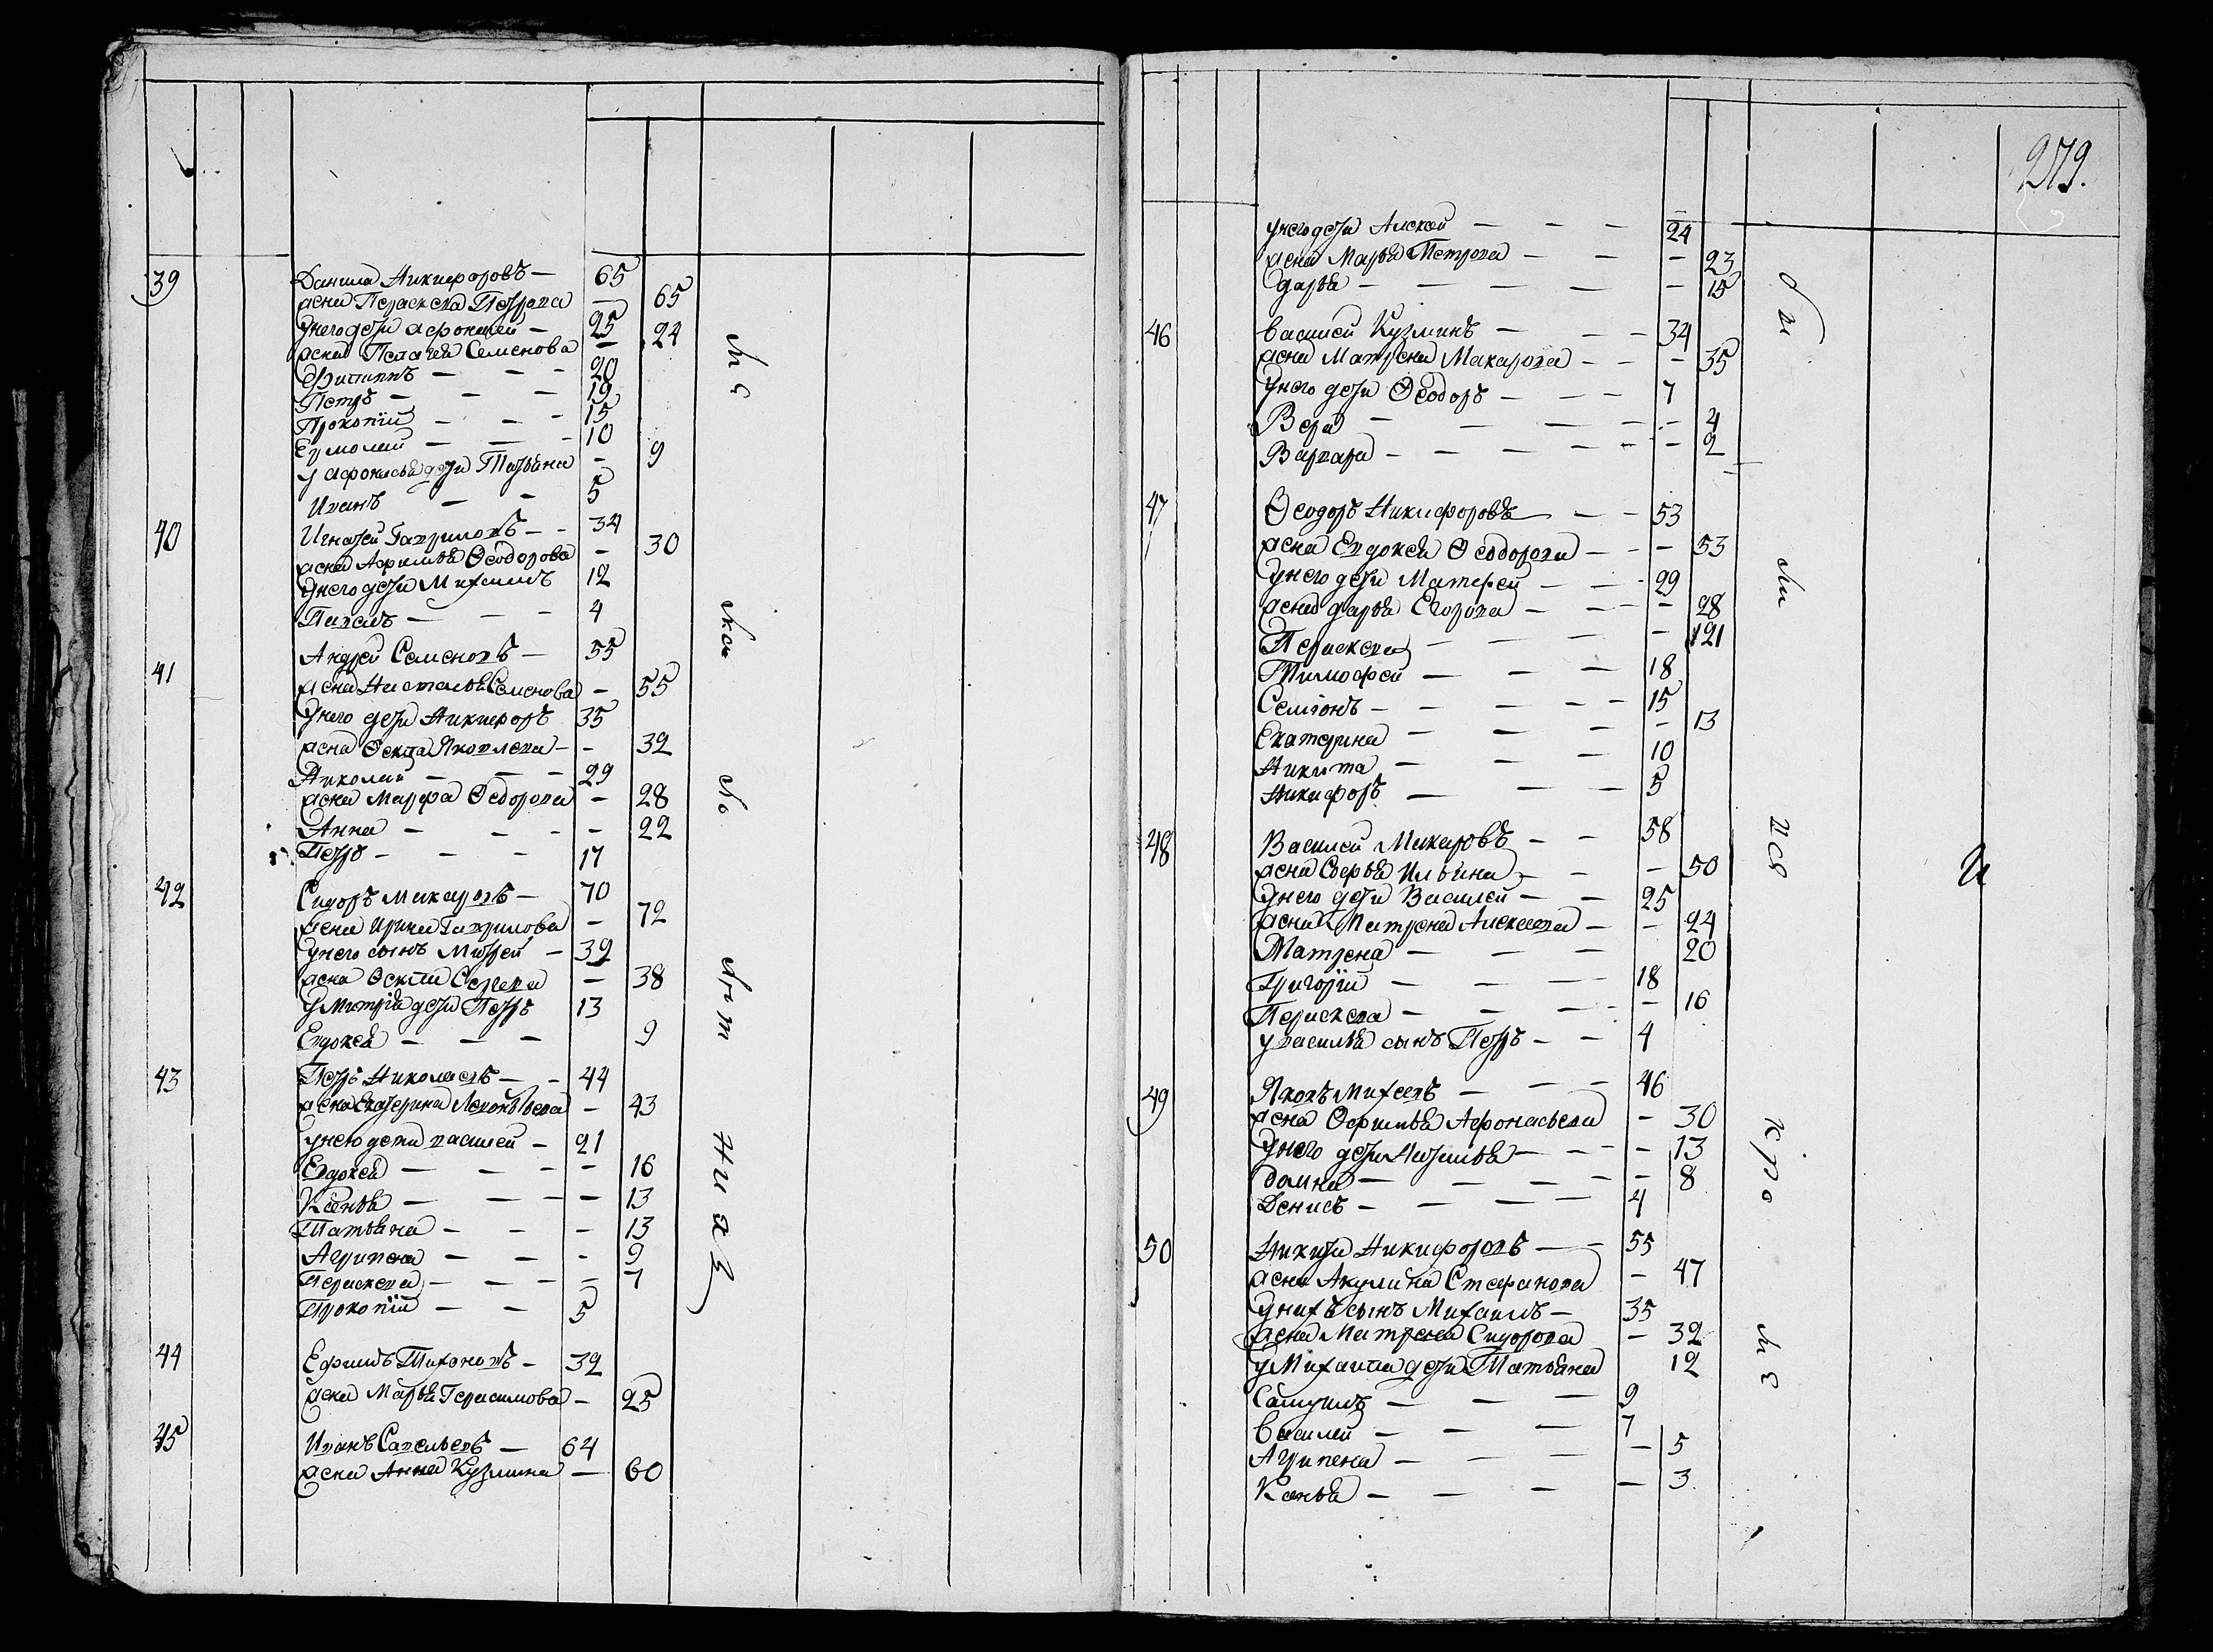 39 Данила Никифоровъ — 65
жена Параскева Петрова — 65
У него дети Афонасей — 25
жена Пелагея Семенова — 24
Филиппъ — — — 20
Петръ — — — 19
Прокопїй — — — 15
Ермолай — — — 10
у Афонасья дети Татьяна — 9
Иванъ — — 5
40 Игнатей Гавриловъ — — 34
жена Афимья Ѳеодорова — 30
У него дети Михаилъ 12
Павелъ — — — 4
41 Андрей Семеновъ — 55
жена Наталья Семенова — 55
У него дети Никифоръ 35
жена Ѳекла Яковлева — — 32
Николай — — — 29
жена Марфа Ѳедорова — 28
Анна — — — — 22
Петръ — — — 17
42 Сидоръ Макаровъ — 70
жена Ирина Гаврилова — 72
У него сынъ Митрей — 39
жена Ѳекла Сергева — 38
У Митрїя дети Петръ 13
Евдокея — — — 9
43 Петръ Николаевъ — — 44
жена Екатерина Леонтьева — 43
У него дети василей — 21
Евдокея — — — — 16
Ксенья — — — — 13
Татьяна — — — 13
Агрипена — — — 9
Параскева — — — — 7
Прокопїй — — 5
44 Ефимъ Тихоновъ — 32
жена Марья Герасимова — 25
45 Иванъ Савельевъ — 64
жена Анна Кузмина — 60
279.
У него дети Алексей — — — 24
жена Марья Петрова — — — 23
дарья — — — — — 15
46 василей Кузминъ — — — 34
жена Матрена Макарова — — — 35
У него дети Ѳеодоръ — — — 7
Вера — — — — — 4
Варвара — — — — — — 2
47 Ѳеодоръ Никифоровъ — — — 53
жена Евдокея Ѳеодорова — — — 53
У него дети Матфей — — — 29
жена дарья Егорова — — — — 28
Параскева — — — — 21
Тимофей — — — 18
Семїонъ — — — — — 15
Екатерина — — — — 13
Никита — — — 10
Никифоръ — — — 5
48 Василей Макаровъ — — 58
жена Софья Ильина — — — 50
У него дети Василей — — 25
жена Матрена Алексеева — — 24
Матрена — — — 20
Григорїй — — — 18
Параскева — — — — — 16
у василья сынъ Петръ — — 4
49 Яковъ Михеевъ — — — 46
жена Ѳефимья Афонасьева — 30
У него дети Наталья — — — 13
домна — — — — — 8
Денисъ — — — — 4
50 Никита Никифоровъ — — 55
жена Акулина Стефанова — 47
У нихъ сынъ Михаилъ — 35
жена Матрена Сидорова — 32
у Михаила дети Татьяна 12
Самуилъ — — — 9
василей — — — 7
Агрипена — — — — 5
Ксенья — — — — 3